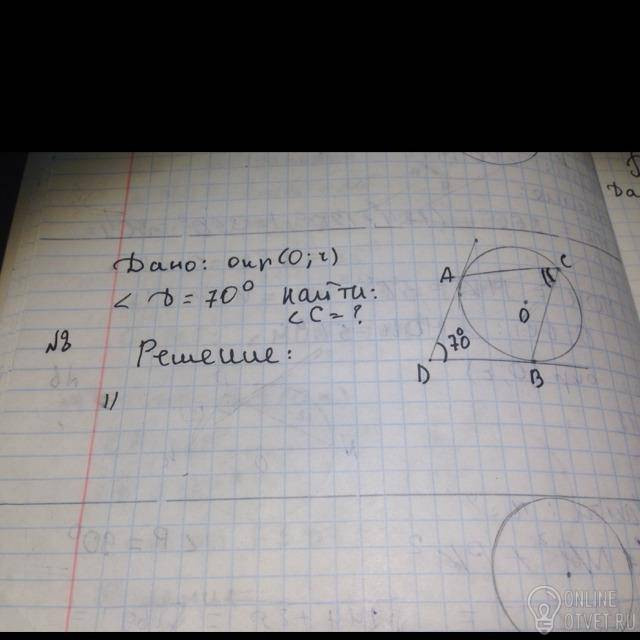 Дано: окр(O; r)
∠ D = 70° найти:
∠ C = ?
№8
Решение:
1)
A
C
O
70°
D
B
Да
∠ A = 90°
ONLINE
OTVET.RU